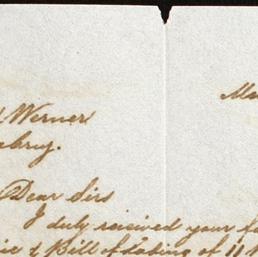 Werner
Dear Sirs
I duly received your
& Bill of Lading of 11